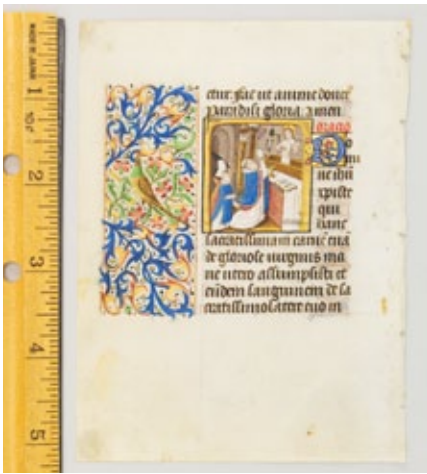 ctur. fac ut anime donet
paradisi gloria amen
oratio
Do
mi
ne ihu
xpiste
qui
hanc
sacratissimam carnē tuā
de gloriose virginis ma
rie utero assumpsisti et
eūdem sanguinem de sa
cratissimo latere tuo in
1
2
3
4
5